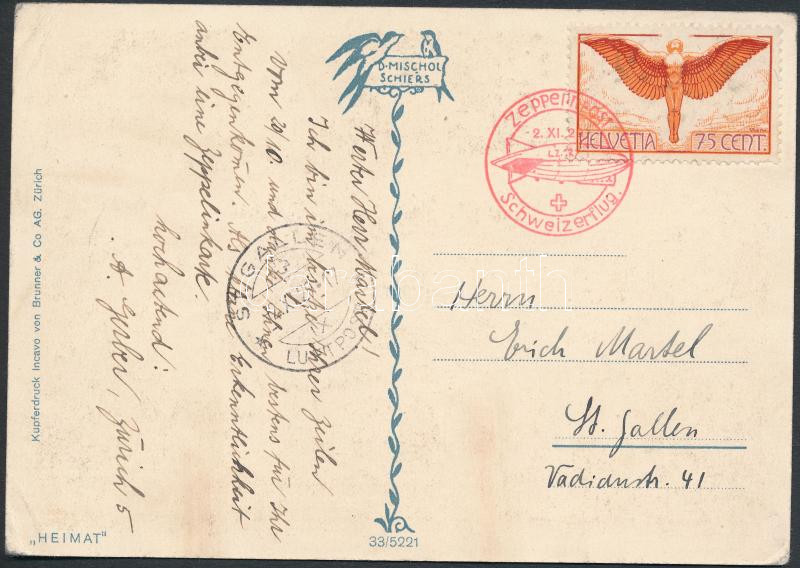 D. MISCHOL
SCHIERS
Zeppelinpost
2. XI. 2
LZ
Schweizerflug.
HELVETIA 75 CENT.
Werter Herr Martel!
Ich bin im Besitze Ihrer Zeilen
vom 29/10 und danke Ihnen bestens für Ihr
Entgegenkommen. Als kleine Erkenntlichkeit
anbei eine Zeppelinkarte.
hochachtend:
A. Gerber, Zürich 5
ST. GALLEN
LUFTPOST
Herrn
Erich Martel
St. Gallen
Vadianstr. 41
Kupferdruck Incavo von Brunner & Co AG. Zürich
„HEIMAT"
33/5221
darabanth